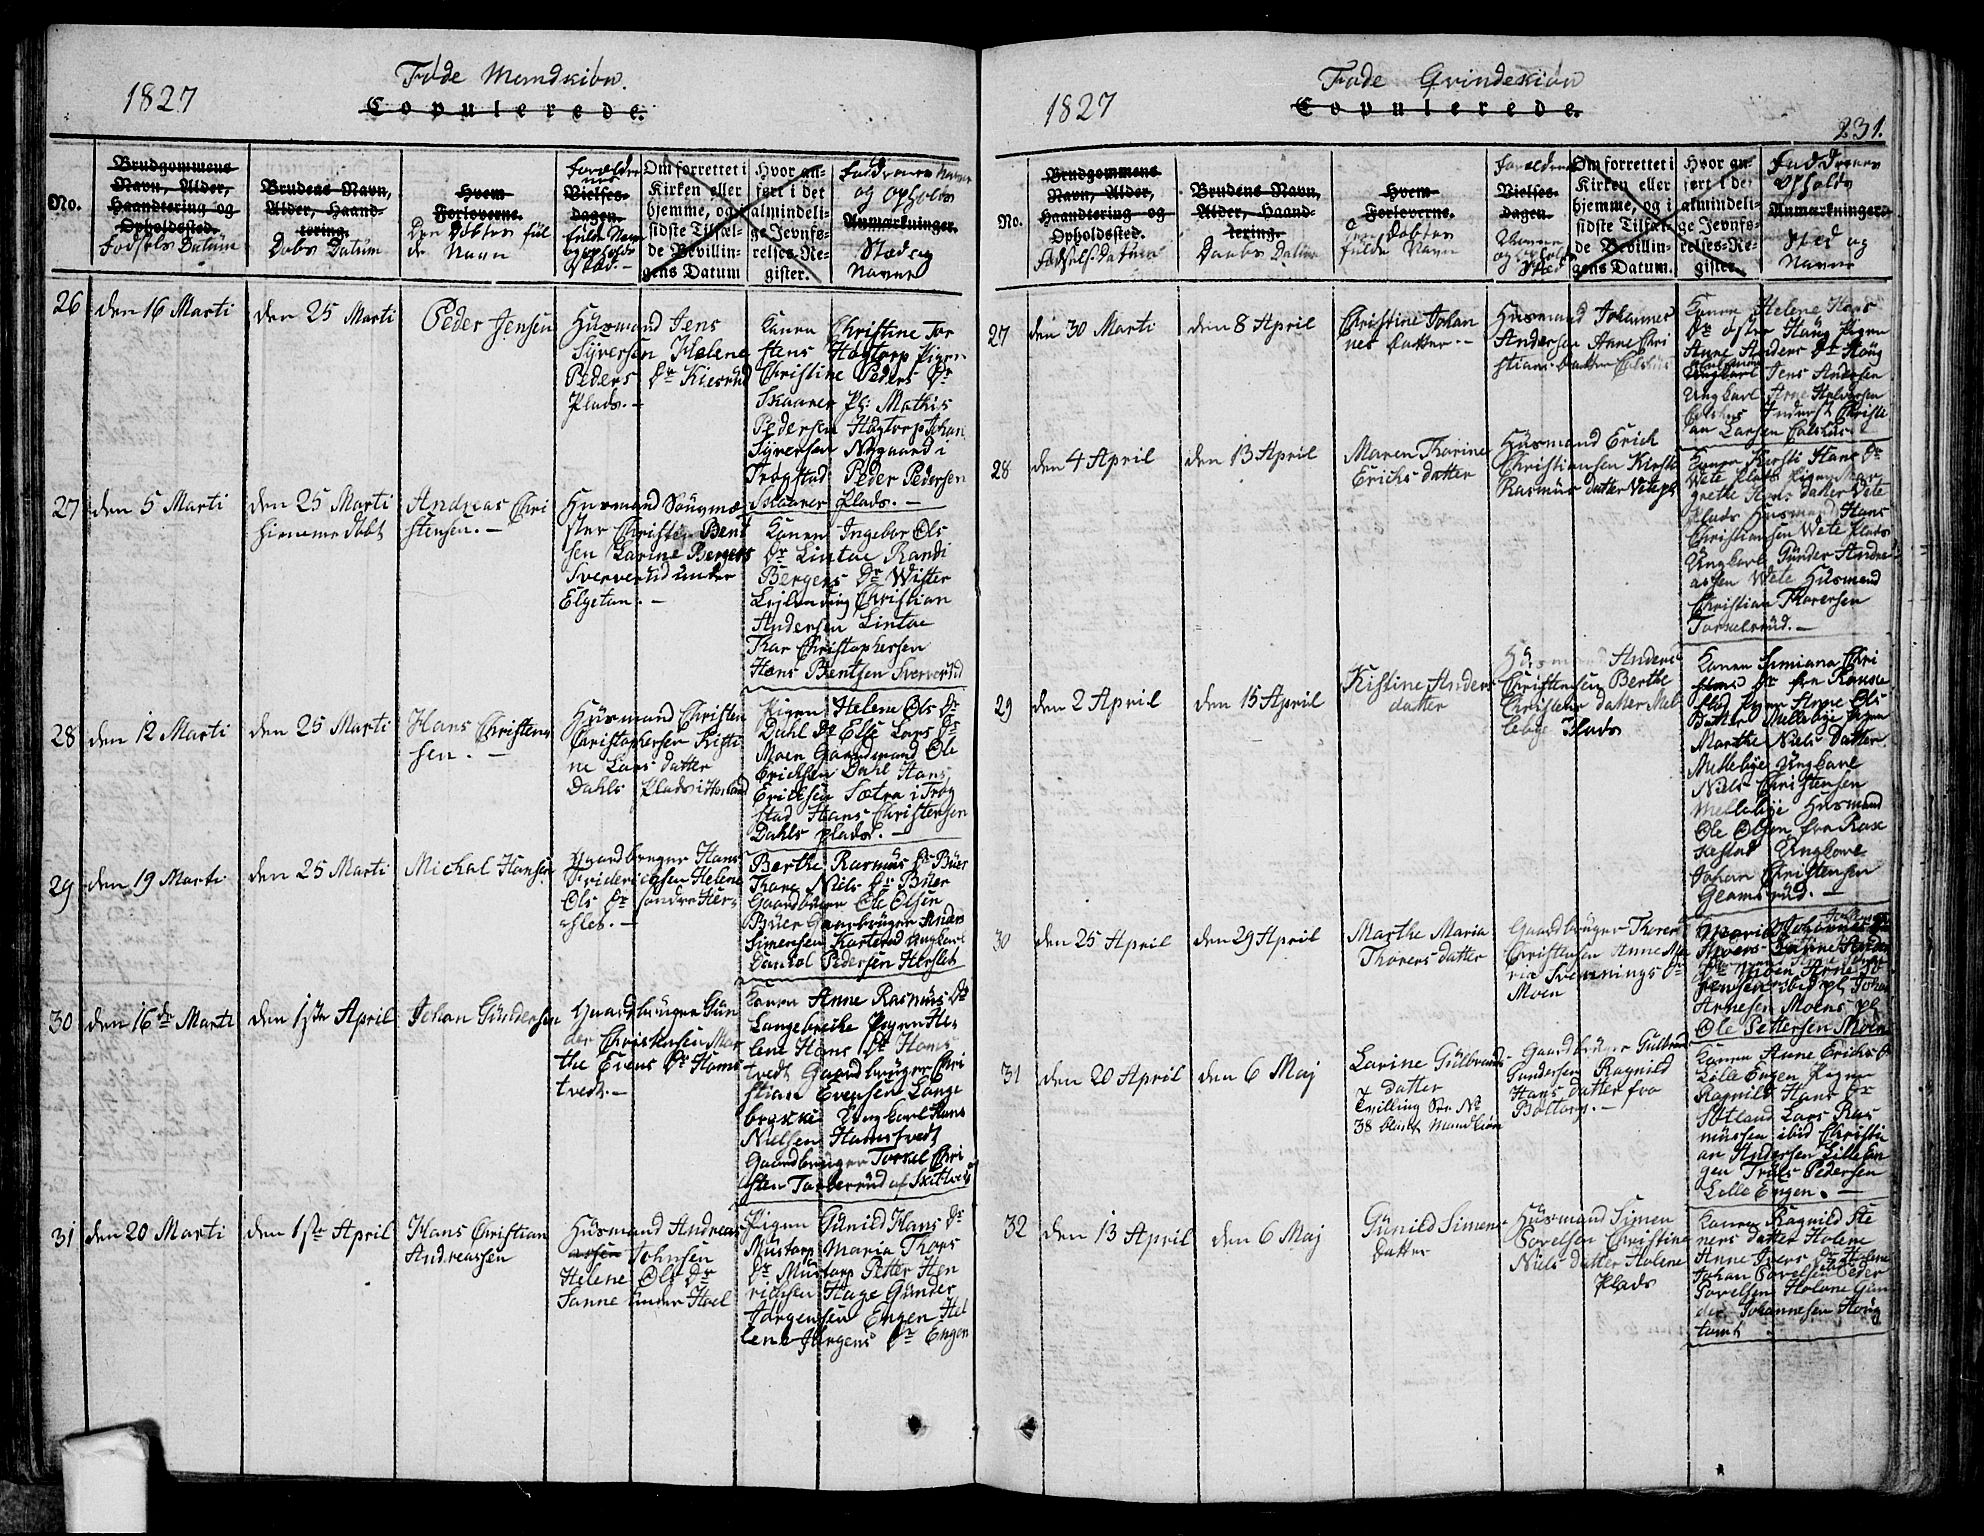 1827
Føde Mandkiøn.
Copulerede.
No.
Brudgommens
Navn, Alder,
Haandtering og
Opholdssted.
Fødsels Datum
Brudens Navn,
Alder, Haand-
tering.
Dobs Datum
Hvem
Forloverne.
Den Døbtes ful
de Navn
Forældre
nes
Vielses-
dagen.
fulde Navn
og opholds
Stæd.-
Om forrettet i
Kirken eller
hjemme, og i
sidste Tilfæl-
de Bevillin-
gens Datum
Hvor an-
ført i det
almindeli-
ge Jevnfø-
relses-Re-
gister.
Faddrenes Navne
og opholds
Anmærkninger.
Stæd og
Navne
26
den 16 Marti
den 25 Marti
Peder Jensen
Huusmand Jens
Syversen Hælene
Peders Dr Kiesrud
Plads.-
Konen Christine Tor
stens Høgtorp Pigen
Christine Peders Dr
Skaaner Pl: Mathis
Pedersen Høgtorp Johan
Syversen Nygaard i
Trøgstad Peder Pedersen
Skaaner Plads.-
27
den 5 Marti
den 25 Marti
hiemmedøbt
Andreas Chri
stensen.-
Husmand Saugmæ
ster Christen Bent
sen Larine Bergers
Sververud under
Elgetun.-
Konen Ingebor Ols
Dr Lintoe Randi
Bergers Dr Wister
Leilending Christian
Andersen Lintoe
Thor Christophersen
Hans Bentsen Sververud
28
den 12 Marti
den 25 Marti
Hans Christen
sen.-
Huusmand Christen
Christophersen Kisti
ne Lars datter
Dahls Plads i Havnaas
Pigen Helene Ols Dr
Dahl Dr Else Lars Dr
Moen Gaardmand Ole
Ericksen Dahl Hans
Ericksen Sætra i Trøg
stad Hans Christensen
Dahls plads.-
29
den 19 Marti
den 25 Marti
Michal Hansen
Gaardbruger Hans
Friderichsen Helene
Ols Dr søndre Her-
slet.-
Berthe Rasmus Dr Büer
Thore Niels Dr Büer
Gaardbruger Ole Olsen
Büer Gaardbruger Anders
Simensen Karterud Ungkarl
Dankel Pedersen Herslet
30
den 16de Marti
den 1ste April
Johan Gundersen
Gaardbruger Gün
der Christensen Mar
the Evens Dr Hams
tvedt.-
Konen Anne Rasmus Dr
Langebrekke Pigen He-
lene Hans Dr Hams
tvedt Gaardbruger Chri
stian Evensen Lange
brekke Ungkarl Hans
Nielsen Hamstvedt
Gaardbruger Torkel Chri
31
den 20 Marti
den 1ste April
Hans Christian
Andreassen
Huusmand Andreas
Johnsen
Helene Ols Dr
Sanne under Hoel
Pigen Günild Hans Dr
Mustorp Maria Thors
Dr Mustorp Petter Hen
richsen Hage Gunder
Jørgensen Engen Hel
lene Jørgens Dr Engen
1827
Føde Qvindekiøn
Copulerede.
231.
No.
Brudgommens
Navn, Alder,
Haandtering og
Opholdssted.
Fødsels Datum
Brudens Navn,
Alder, Haand-
tering.
Daabs Datum
Hvem
Forloverne.
Den Døbtes
fulde Navn
Forældrenes
Vielses-
dagen.
Navne
og Ophold
Stæd
Om forrettet i
Kirken eller
hjemme, og i
sidste Tilfæl-
de Bevillin-
gens Datum.
Hvor an-
ført i det
almindeli-
ge Jevnfø-
relses-Re-
gister.
Faddrenes
Opholds
Anmærkninger.
Sted og
Navne
27
den 30 Marti
den 8 April
Christine Johan
nes Datter.-
Huusmand Johannes
Andersen Anne Chri
stians Datter
Konen Helene Hans
Dr østre Haug Pigen
Anne Anders Dr Haug
Ungkarl Jens Andersen
Ungkarl Arne Halversen
Inderst Christi
an Larsen
28
den 4 April
den 13 April
Maren Thorine
Erichs datter
Huusmand Erich
Christiansen Kirsti
Rasmus datter Vetepl
Konen Kirsti Hans Dr
Wete plads Pigen Mar
grethe Hans datter Vete
plads Husmand Hans
Christiansen Wete Plads
Ungkarl Gunder Andre
assen Wete Husmand
Christian Thoresen
Torkelsrud.-
29
den 2 April
den 15 April
Kistine Anders
datter
Huusmand Anders
Christensen Berthe
Christens datter Mel
lebye Plads
Konen Simiana Chri
stens Dr fra Rause
stad Pigen Anne Ols
Datter Mellebye Pigen
Marthe Niels Datter
Mellebye Ungkarl
Niels Christensen
Mellebye Husmand
Ole Olsen fra Rause
kestad Ungkarl
Johan Christensen
Glamsrud.-
30
den 25 April
den 29 April
Marthe Maria
Thorers datter
Gaardbruger Thorer
Christensen Anne Ma
ria Svennings Dr
Moen
Arnesen Moens pl
Ole Pettersen Moen
31
den 20 April
den 6 Maj
Larine Gülbrands
datter
Tvilling See No
38 blant Mandkiøn
Gaardbruger Gulbrand
Gundersen Ragnild
Hans datter fra
Boltorp.-
Konen Anne Erichs Dr
Lille Engen Pigen
Ragnild Hans Dr
Søtland Lars Ras
mussen ibid Christi
an Andersen Lille En
gen Truls Pedersen
Lille Engen.-
32
den 13 April
den 6 Maj
Günild Simens
datter
Huusmand Simen
Povelsen Christine
Niels datter Holene
Plads
Konen Ragnild Ste
ners datter Holene
Anne Ivers Dr Holene
Johan Povelsen Peder
Povelsen Holene Gun
der Johannesen Haug
tomt